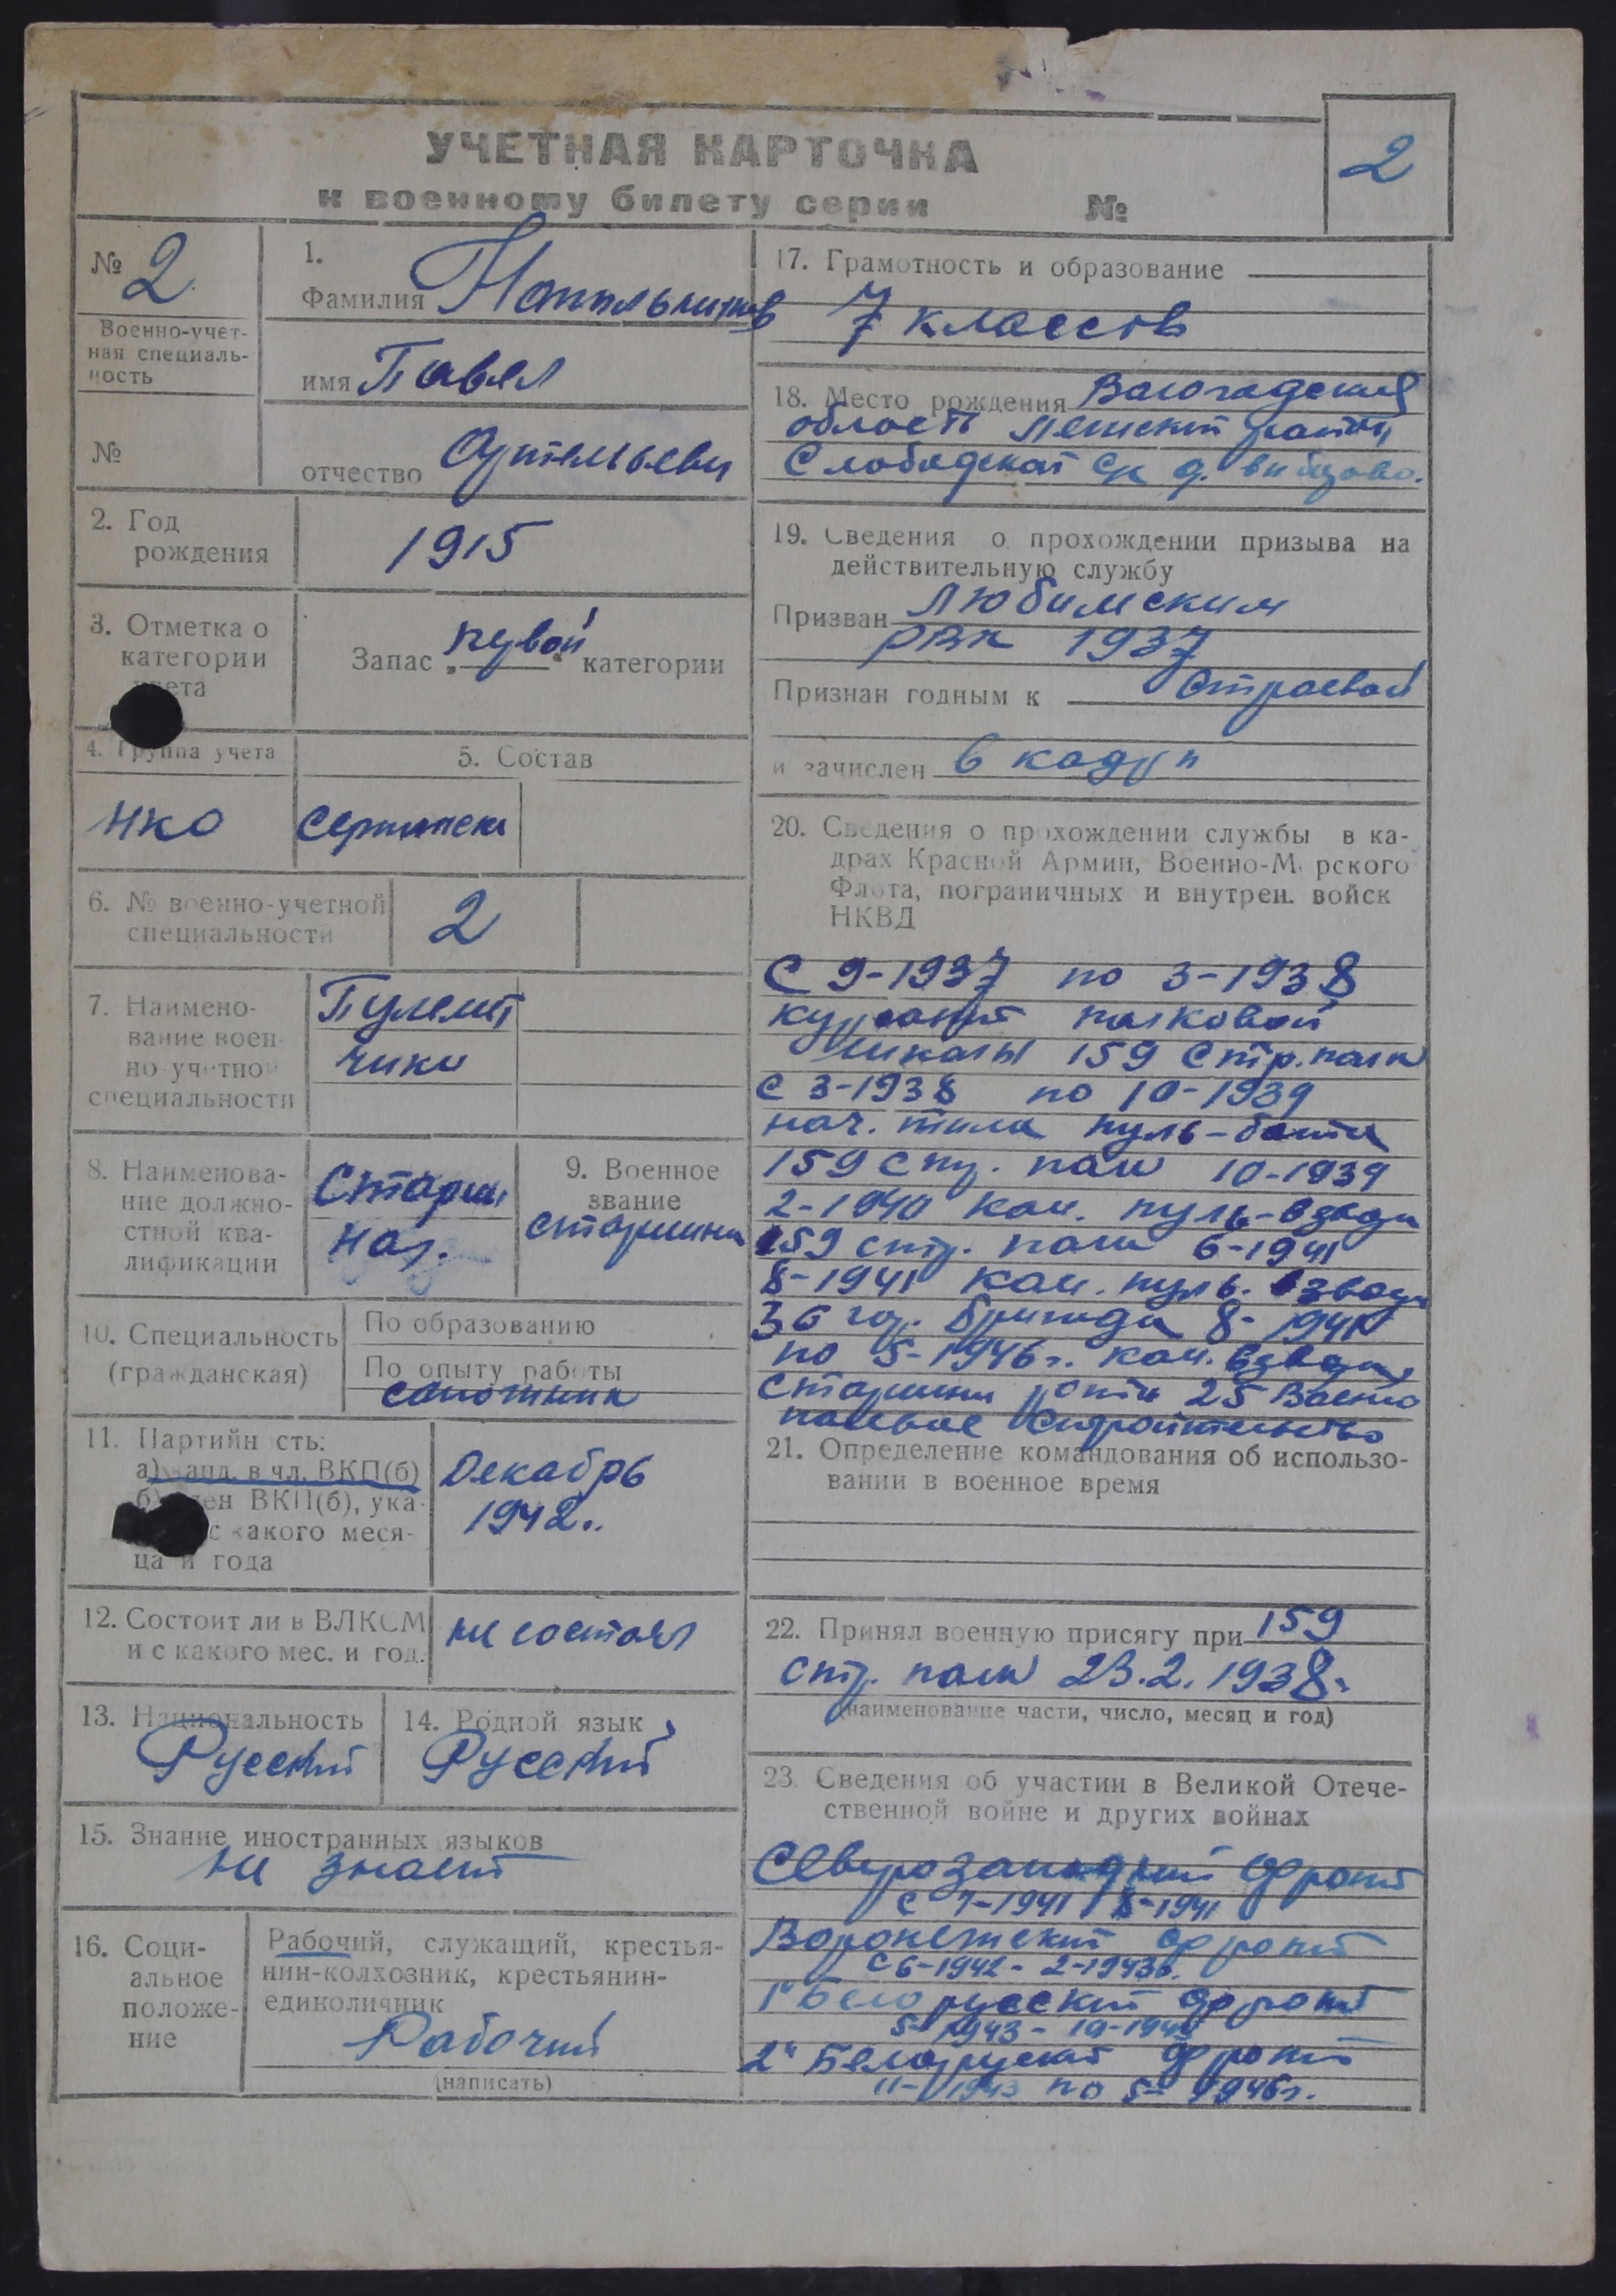 УЧЕТНАЯ КАРТОЧКА
к военному билету серии №
2
№ 2
Военно-учет-
ная специаль-
ность
№
1.
Фамилия
имя Павел
отчество
2. Год
рождения
1915
3. Отметка о
категории
учета
Запас „первой“ категории
4. Группа учета
НКО
5. Состав
6. № военно-учетной
специальности
2
7. Наимено-
вание воен-
но-учетной
специальности
Пулемет
чики
8. Наименова-
ние должно-
стной ква-
лификации
9. Военное
звание
старшина
10. Специальность
(гражданская)
По образованию
По опыту работы
сапожник
11. Партийность:
а) канд. в чл. ВКП(б)
б) член ВКП(б), ука-
с какого меся-
ца и года
Декабрь
1942.
12. Состоит ли в ВЛКСМ
и с какого мес. и год.
не состоял
13. Национальность
Русский
14. Родной язык
Русский
15. Знание иностранных языков
не знает
16. Соци-
альное
положе-
ние
Рабочий, служащий, крестья-
нин-колхозник, крестьянин-
единоличник
Рабочий
(написать)
17. Грамотность и образование
7 классов
18. Место рождения
область район
Слободская с/с д.
19. Сведения о прохождении призыва на
действительную службу
Призван Любимским
РВК 1937
Признан годным к строевой
и зачислен в кадры
20. Сведения о прохождении службы в ка-
драх Красной Армии, Военно-Морского
Флота, пограничных и внутрен. войск
НКВД
С 9-1937 по 3-1938
курсант полковой
школы 159 стр. полк
С 3-1938 по 10-1939
нач. тыла пуль-бата
159 стр. полк 10-1939
2-1940 ком. пуль-взвода
159 стр. полк 6-1941
8-1941 ком. пуль. взвода
36 бригада 8-1941
по 5-1946г. ком. взвода,
старшина роты 25 Военно
полевое строительство
21. Определение командования об использо-
вании в военное время
22. Принял военную присягу при 159
стр. полк 23.2.1938
(наименование части, число, месяц и год)
23. Сведения об участии в Великой Отече-
ственной войне и других войнах
Северозападный фронт
с 7-1941 8-1941
Воронежский фронт
с 6-1942 - 2-1943г.
1й Белорусский фронт
5-1943 -
2й Белорусский фронт
11-1943 по 5-